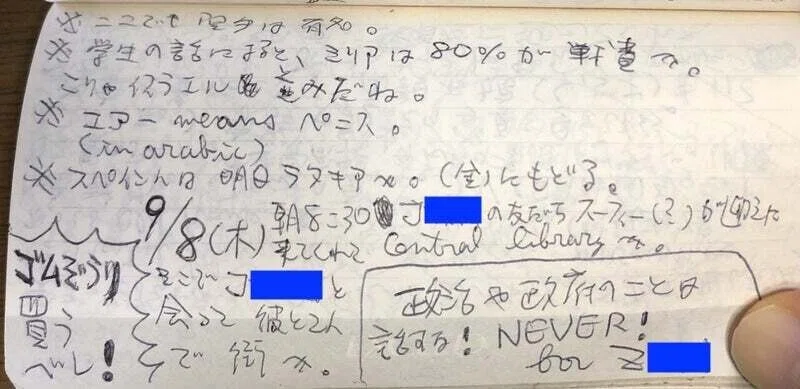 ※ ここでも空手は有名。
※ 学生の話によると、シリアは80%が軍費〜。
こりゃイスラエル並みだね。
※ エアー means ペニス。
(in arabic)
※ スペイン人は明日ラタキアへ。(金)にもどる。
9/8(木) 朝8:30 J の友だちスーフィー(?)が迎えに
来てくれて Central library へ。
そこで J と
会って 彼と2人
で街へ。
ゴムぞうり
買う
ベし!
政治や政府のことは
話するな! NEVER!
for Z